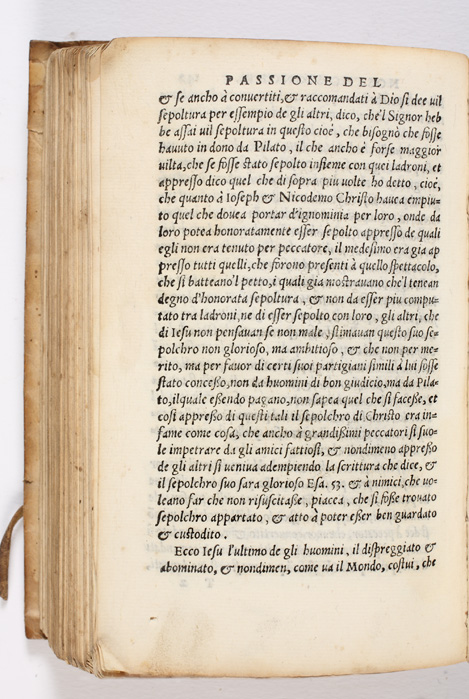 PASSIONE DEL
& se ancho à convertiti, & raccomandati à Dio si dee uil
sepoltura per essempio de gli altri, dico, che'l Signor heb
be assai uil sepoltura in questo cioè, che bisognò che fosse
hauuto in dono da Pilato, il che ancho è forse maggior
uiltà, che se fosse stato sepolto insieme con quei ladroni, et
appresso dico quel che di sopra piu uolte ho detto, cioè,
che quanto à Ioseph & Nicodemo Christo hauea empiu-
to quel che douea portar d'ignominia per loro, onde da
loro potea honoratamente esser sepolto appresso de quali
egli non era tenuto per peccatore, il medesimo era gia ap
presso tutti quelli, che forono presenti à quello spettacolo,
che si batteano'l petto, i quali gia mostrauano che'l tenean
degno d'honorata sepoltura, & non da esser piu compu-
tato tra ladroni, ne di esser sepolto con loro, gli altri, che
di Iesu non pensauan se non male, stimauan questo suo se-
polchro non glorioso, ma ambitioso, & che non per me-
rito, ma per fauor di certi suoi partigiani simili à lui fosse
stato concesso, non da huomini di bon giudicio, ma da Pila-
to, ilquale essendo pagano, non sapea quel che si facesse, et
cosi appresso di questi tali il sepolchro di Christo era in-
fame come cosa, che ancho à grandissimi peccatori si suo-
le impetrare da gli amici fattiosi, & nondimeno appresso
de gli altri si ueniua adempiendo la scrittura che dice, &
il sepolchro suo sara glorioso Esa. 53. & à nimici, che uo-
leano far che non risuscitasse, piacea, che si fosse trouato
sepolchro appartato, & atto à poter esser ben guardato
& custodito.
Ecco Iesu l'ultimo de gli huomini, il dispreggiato &
abominato, & nondimen, come va il Mondo, costui, che